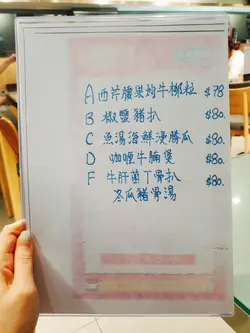 A 西芹腰果炆牛柳粒 $78
B 椒鹽豬扒 $80.
C 魚湯海鮮浸勝瓜 $80.
D 咖喱牛腩煲 $80.
F 牛肝菌丁骨扒 $80.
冬瓜豬骨湯